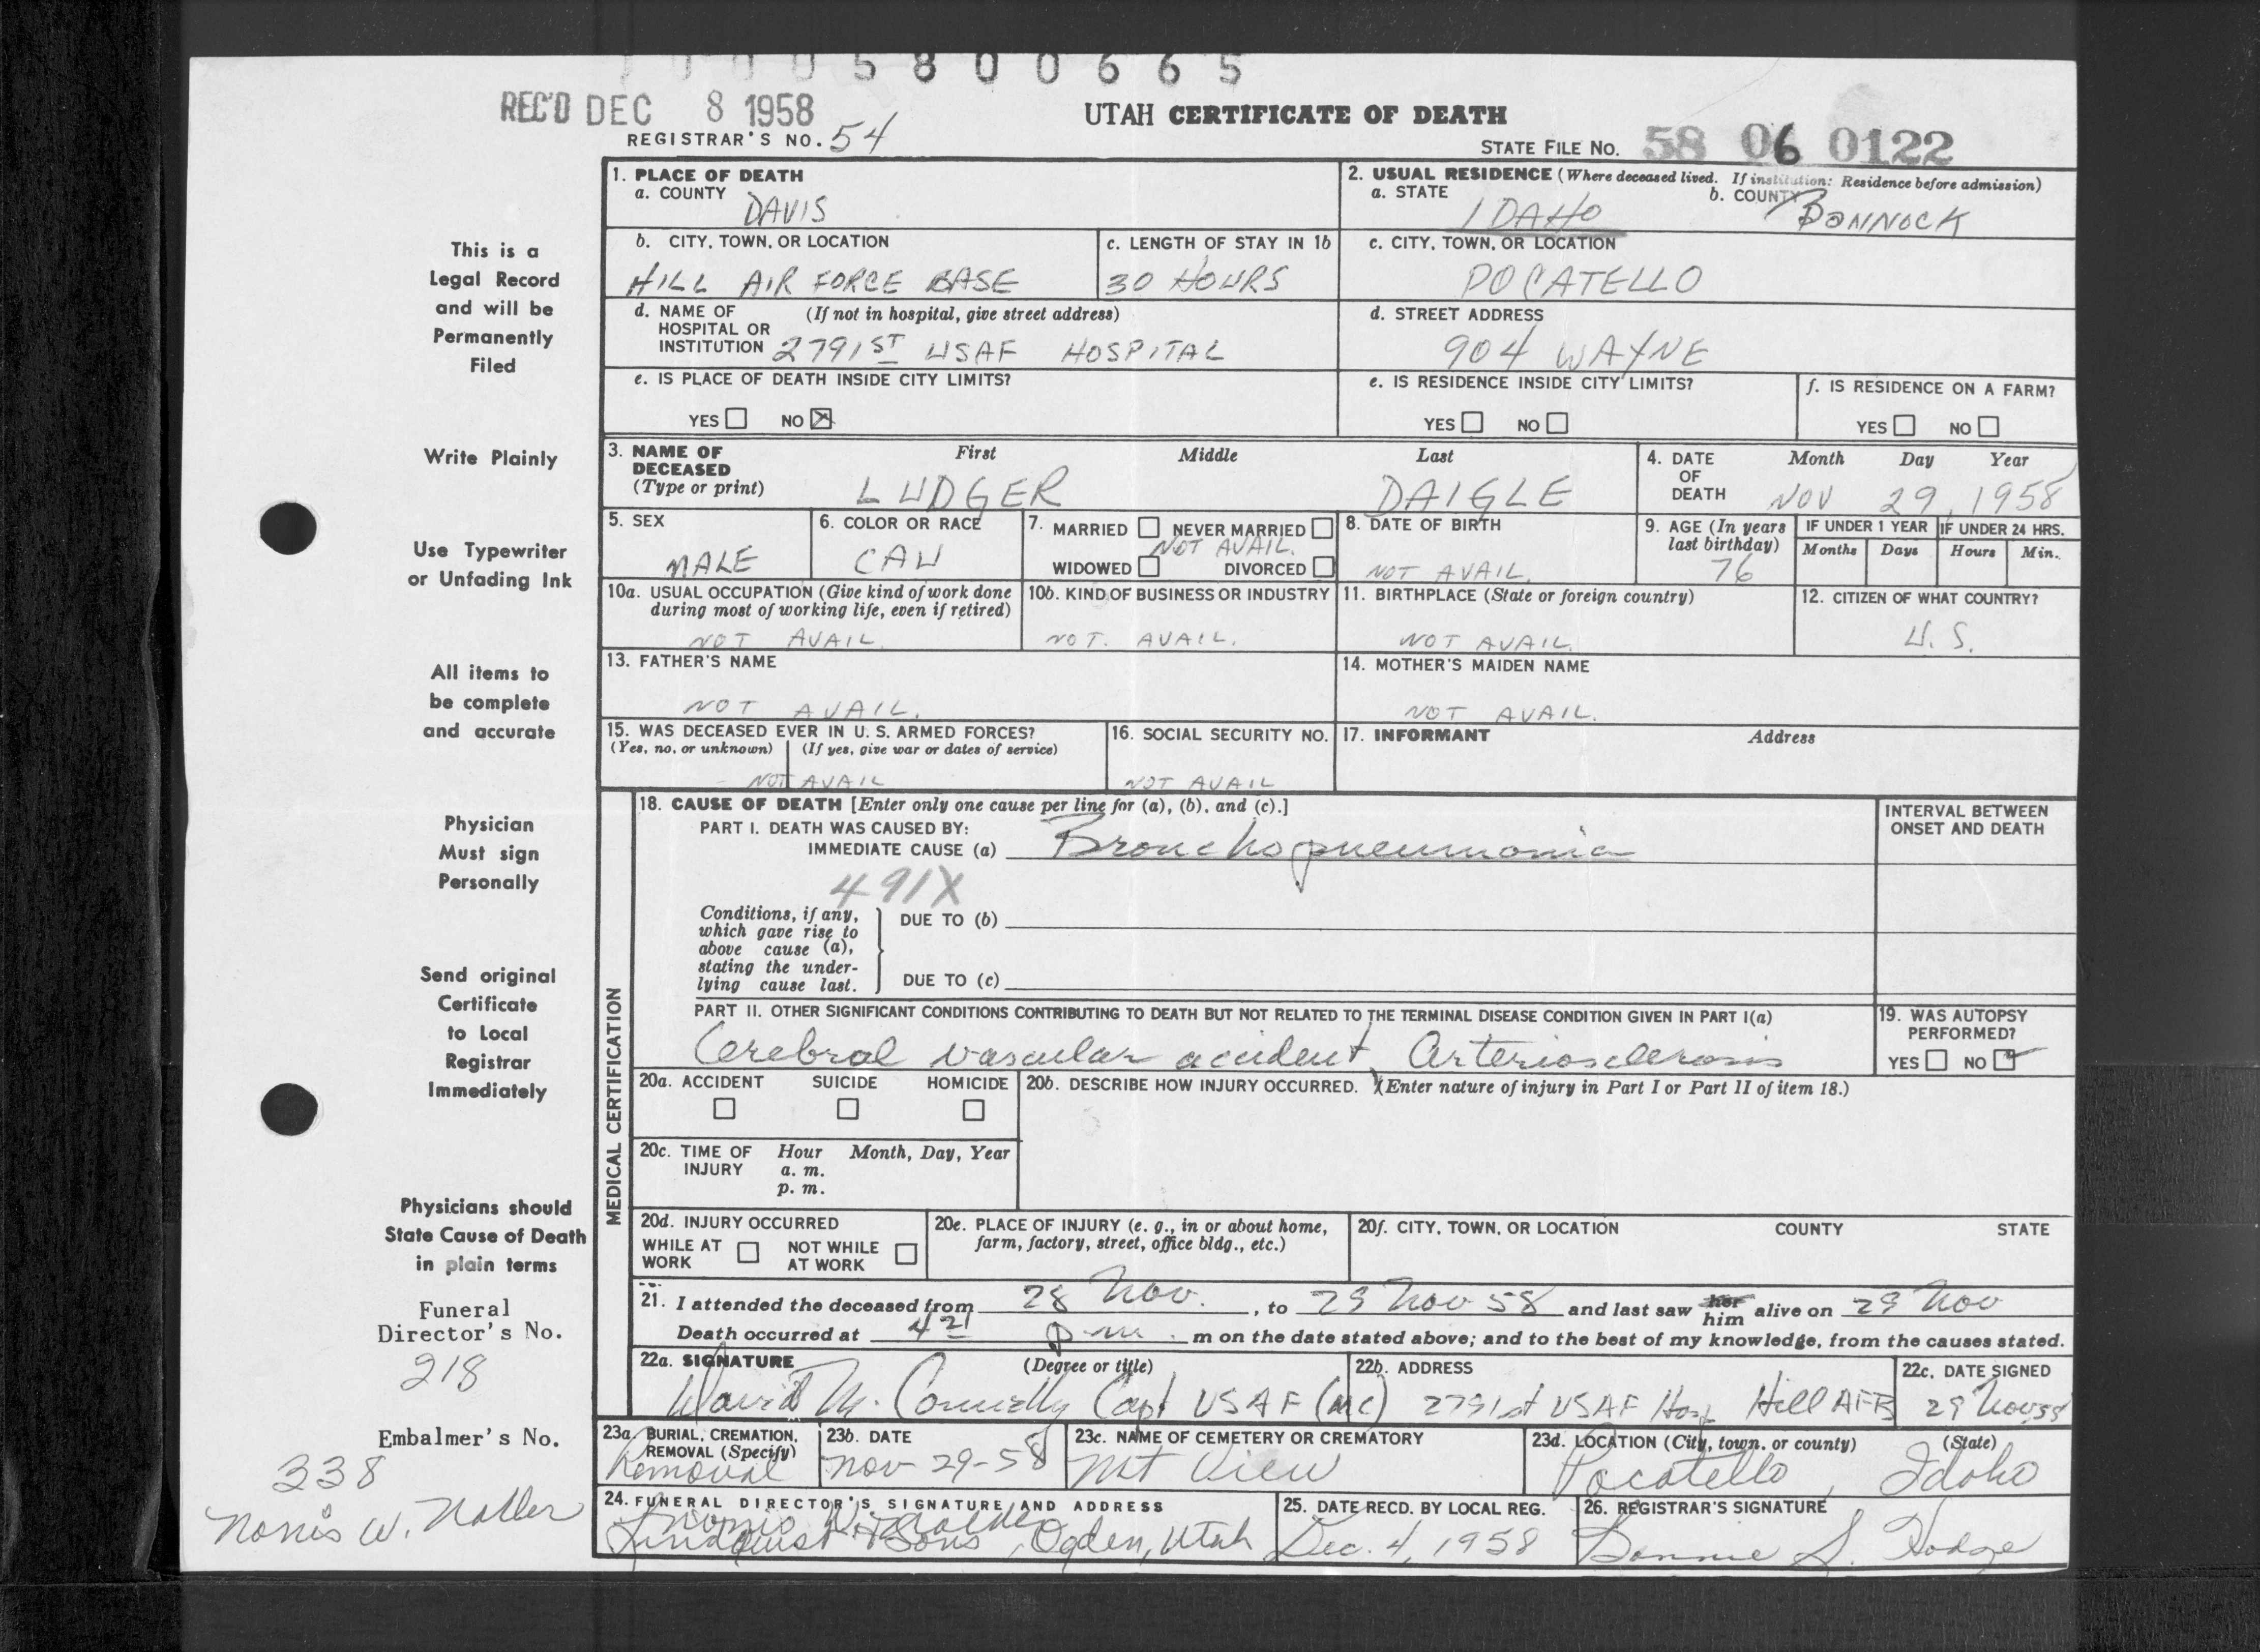 0005800665
REC'D DEC 8 1958
UTAH CERTIFICATE OF DEATH
REGISTRAR'S NO. 54
STATE FILE No. 58 06 0122
This is a
Legal Record
and will be
Permanently
Filed
Write Plainly
Use Typewriter
or Unfading Ink
All items to
be complete
and accurate
Physician
Must sign
Personally
Send original
Certificate
to Local
Registrar
Immediately
Physicians should
State Cause of Death
in plain terms
Funeral
Director's No.
218
Embalmer's No.
338
Norris W. Nalder
1. PLACE OF DEATH
a. COUNTY DAVIS
2. USUAL RESIDENCE (Where deceased lived. If institution: Residence before admission)
a. STATE IDAHO
b. COUNTY BONNOCK
b. CITY, TOWN, OR LOCATION
HILL AIR FORCE BASE
c. LENGTH OF STAY IN 1b
30 HOURS
c. CITY, TOWN, OR LOCATION
POCATELLO
d. NAME OF HOSPITAL OR INSTITUTION (If not in hospital, give street address)
2791ST USAF HOSPITAL
d. STREET ADDRESS
904 WAYNE
e. IS PLACE OF DEATH INSIDE CITY LIMITS?
YES NO
e. IS RESIDENCE INSIDE CITY LIMITS?
YES NO
f. IS RESIDENCE ON A FARM?
YES NO
3. NAME OF DECEASED (Type or print)
First Middle Last
LUDGER DAIGLE
4. DATE OF DEATH
Month Day Year
NOV 29, 1958
5. SEX
MALE
6. COLOR OR RACE
CAU
7. MARRIED NEVER MARRIED
NOT AVAIL.
WIDOWED DIVORCED
8. DATE OF BIRTH
NOT AVAIL.
9. AGE (In years last birthday)
76
IF UNDER 1 YEAR
Months Days
IF UNDER 24 HRS.
Hours Min.
10a. USUAL OCCUPATION (Give kind of work done
during most of working life, even if retired)
NOT AVAIL.
10b. KIND OF BUSINESS OR INDUSTRY
NOT. AVAIL.
11. BIRTHPLACE (State or foreign country)
NOT AVAIL.
12. CITIZEN OF WHAT COUNTRY?
U. S.
13. FATHER'S NAME
NOT AVAIL.
14. MOTHER'S MAIDEN NAME
NOT AVAIL.
15. WAS DECEASED EVER IN U. S. ARMED FORCES?
(Yes, no, or unknown) (If yes, give war or dates of service)
NOT AVAIL
16. SOCIAL SECURITY NO.
NOT AVAIL
17. INFORMANT Address
MEDICAL CERTIFICATION
18. CAUSE OF DEATH [Enter only one cause per line for (a), (b), and (c).]
INTERVAL BETWEEN
ONSET AND DEATH
PART I. DEATH WAS CAUSED BY:
IMMEDIATE CAUSE (a) Bronchopneumonia
491X
Conditions, if any,
which gave rise to
above cause (a),
stating the under-
lying cause last.
DUE TO (b)
DUE TO (c)
PART II. OTHER SIGNIFICANT CONDITIONS CONTRIBUTING TO DEATH BUT NOT RELATED TO THE TERMINAL DISEASE CONDITION GIVEN IN PART I(a)
Cerebral vascular accident, Arteriosclerosis
19. WAS AUTOPSY
PERFORMED?
YES NO
20a. ACCIDENT SUICIDE HOMICIDE
20b. DESCRIBE HOW INJURY OCCURRED. (Enter nature of injury in Part I or Part II of item 18.)
20c. TIME OF INJURY
Hour Month, Day, Year
a. m.
p. m.
20d. INJURY OCCURRED
WHILE AT WORK NOT WHILE AT WORK
20e. PLACE OF INJURY (e. g., in or about home,
farm, factory, street, office bldg., etc.)
20f. CITY, TOWN, OR LOCATION COUNTY STATE
21. I attended the deceased from 28 Nov. , to 29 Nov 58 and last saw her him alive on 29 Nov
Death occurred at 421 pm. m on the date stated above; and to the best of my knowledge, from the causes stated.
22a. SIGNATURE (Degree or title)
David M. Connelly Capt USAF (MC)
22b. ADDRESS
2791st USAF Hosp Hill AFB
22c. DATE SIGNED
29 Nov 58
23a. BURIAL, CREMATION,
REMOVAL (Specify)
Removal
23b. DATE
Nov 29-58
23c. NAME OF CEMETERY OR CREMATORY
Mt View
23d. LOCATION (City, town, or county) (State)
Pocatello, Idaho
24. FUNERAL DIRECTOR'S SIGNATURE AND ADDRESS
Norris W. Nalder
Lindquist & Sons, Ogden, Utah
25. DATE RECD. BY LOCAL REG.
Dec. 4, 1958
26. REGISTRAR'S SIGNATURE
Bonnie S. Hodge